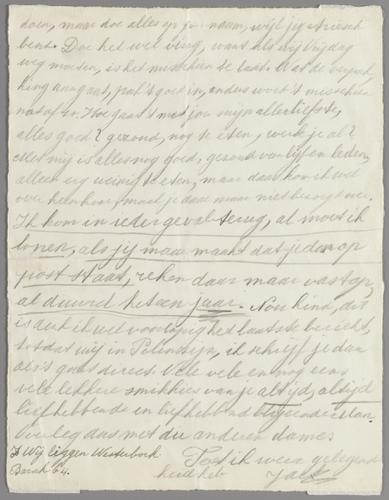 doen, maar doe alles op je naam, wijl je arisch
bent. Doe het wel vlug, want als wij Vrijdag
weg moeten, is het misschien te laat. Wat de verpak-
king aangaat, pak 't goed in, anders wordt 't misschien
nat of zo. Hoe gaat 't met jou mijn allerliefste,
alles goed? gezond, nog te eten, werk je al?
Met mij is alles nog goed, gezond van lijf en leden,
alleen erg weinig te eten, maar daar kom ik wel
over heen hoor, maak je daar maar niet bezorgd over.
Ik kom in ieder geval terug, al moet ik
lopen, als jij maar maakt dat je dan op
post staat, reken daar maar vast op,
al duurt het een jaar. Nou kind, dit
is dan ik wel voorlopig het laatste bericht,
totdat wij in Polen zijn, ik schrijf je dan
als 't gaat direct. Vele vele en nog eens
vele lekkere smikkies van je altijd, altijd
liefhebbende en liefhebbend blijvende
Overleg dus met de anderen dames
Wij liggen Westerbork
Barak 64.
Tot ik weer gelegen
heid heb Jack